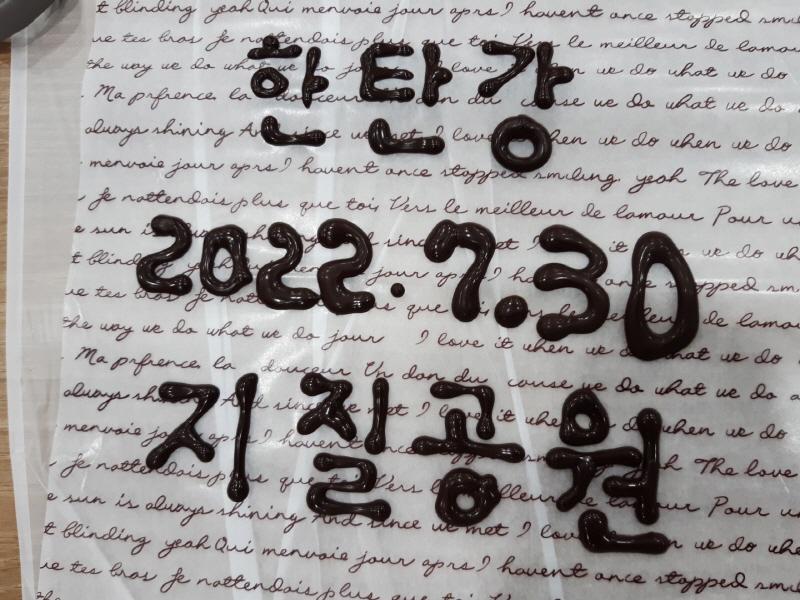 t blinding yeah Qui menvoie jour aprs? havent once stopped smil
ue tes bras Je nattendais plus que toi Vers le meilleur de lamou
한탄강
the way we do what we do jour I love it when we do what we do
Ma prfrence la douceur Un don du cause we do what we do
always shining And since we met I love it when we do when we do
menvoie jour aprs? havent once stopped smiling yeah The love
Je nattendais plus que toi Vers le meilleur de lamour Pour u
2022.7.30
e sun is always since met it we do
t blinding yeah stopped smi
ue tes bras Je natt plus que toi Vers le meilleur de lamou
the way we do what we do jour I love it when we do what we do
Ma prfrence la douceur Un don du cause we do what we do a
지질공원
always shining And since we met I love it when we do when we do
menvoie jour aprs? havent once yeah The love
Je nattendais plus que toi Vers le meilleur de lamour Pour u
e sun is always shining And since we met I love it when we do what we do
t blinding yeah Qui menvoie jour aprs? havent once stopped smil
ue tes bras Je nattendais plus que toi Vers le meilleur de